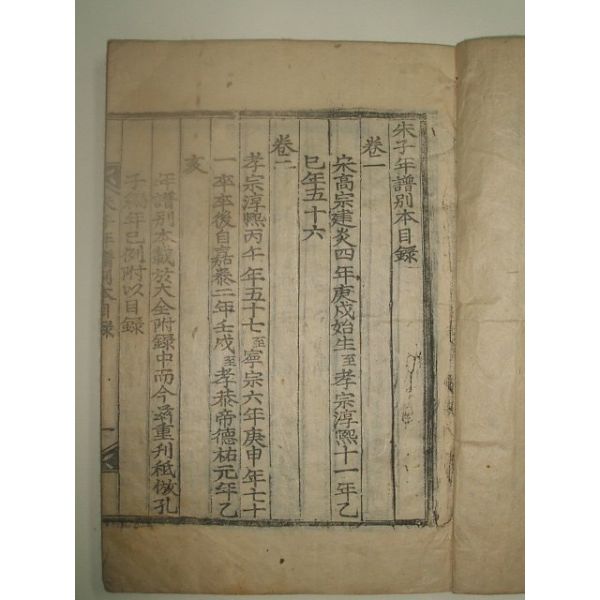 朱子年譜別本目録
卷一
宋高宗建炎四年庚戌始生至孝宗淳熙十一年乙
巳年五十六
卷二
孝宗淳熙丙午年五十七至寧宗六年庚申年七十
一卒卒後自嘉泰二年壬戌至孝恭帝德祐元年乙
亥
年譜別本載於大全附録中而今番重刊秪倣孔
子年已例附以目録
年譜別本目録